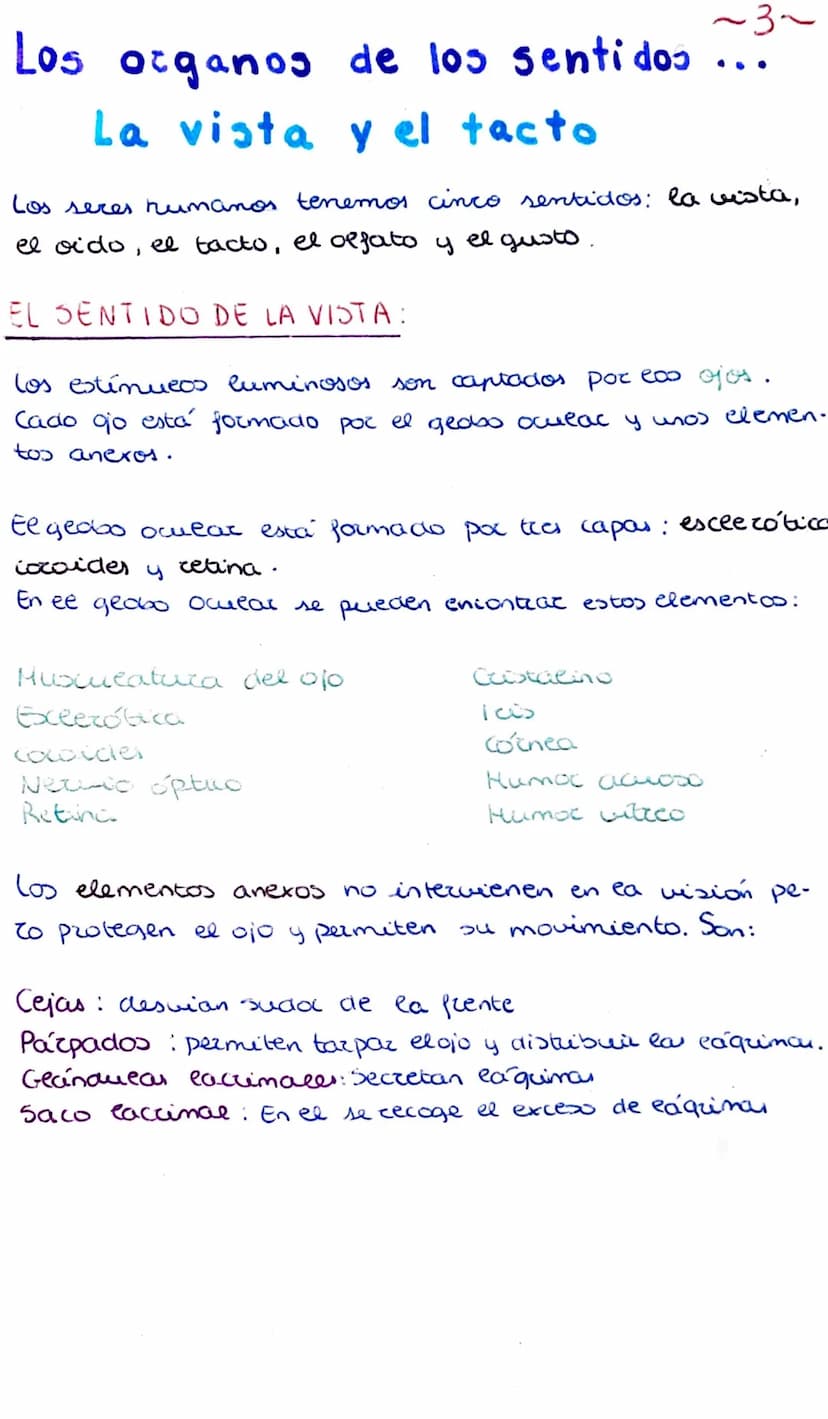 ~3~
Los organos de los sentidos...
La vista y el tacto
Los seres humanos tenemos cinco sentidos: la vista,
el oido, el tacto, el olfato y el gusto.
EL SENTIDO DE LA VISTA:
Los estímulos luminosos son captados por los ojos.
Cado ojo está formado por el globo ocular y unos elemen-
tos anexos.
El globo ocular está formado por tres capas: esclerótica
coroides y retina.
En el globo ocular se pueden encontrar estos elementos:
Musculatura del ojo
Esclerótica
coroides
Nervio óptico
Retina
Cristalino
Iris
Córnea
Humor acuoso
Humor vítreo
Los elementos anexos no intervienen en la visión pe-
ro protegen el ojo y permiten su movimiento. Son:
Cejas: desvian sudor de la frente
Párpados: permiten tarpar el ojo y distribuir las láguimas.
Glándulas lacrimales: Secretan láguimas
Saco lacrimal: En el se recoge el exceso de láguimas